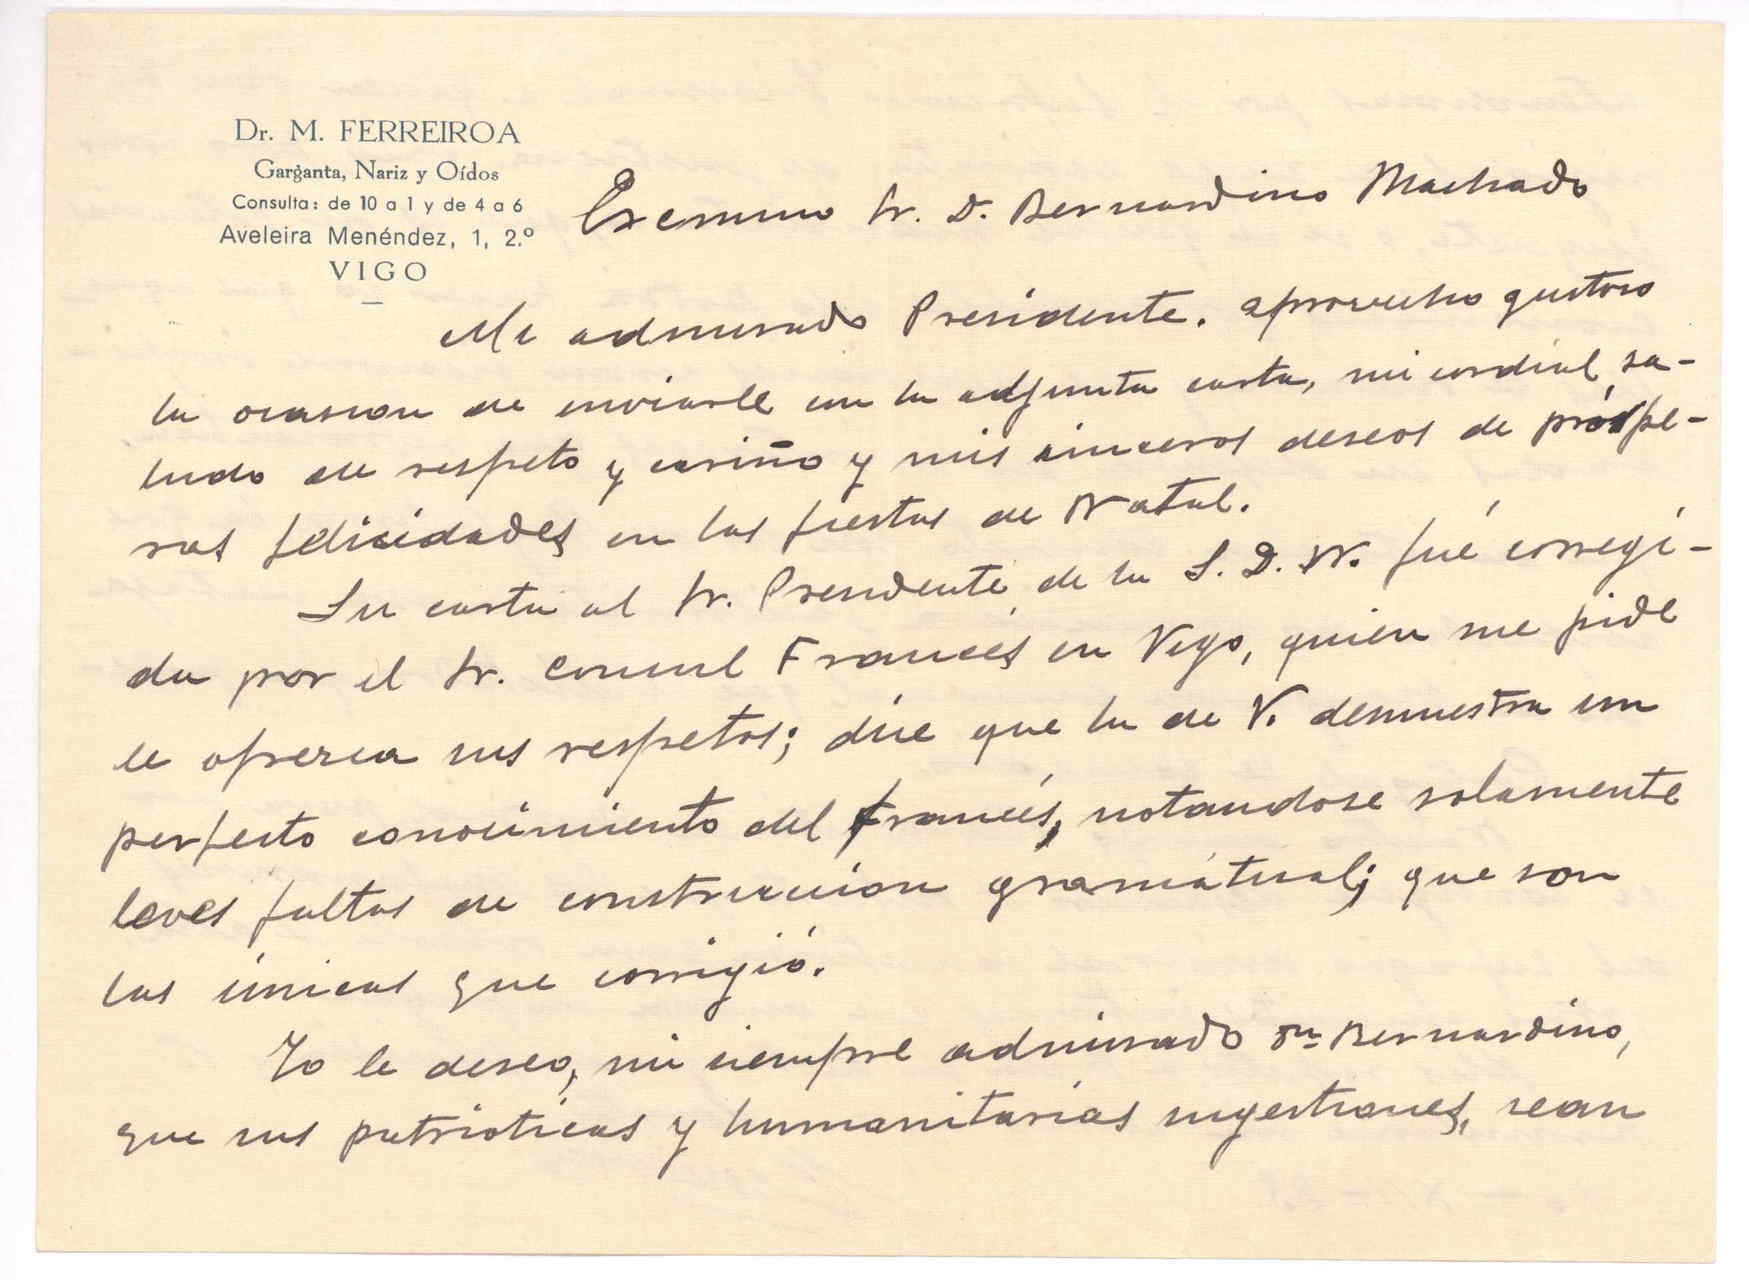 Dr. M. FERREIROA
Garganta, Nariz y Oídos
Consulta: de 10 a 1 y de 4 a 6
Aveleira Menéndez, 1, 2.º
VIGO
Exemmo Sr. D. Bernardino Machado
Mi admirado Presidente. aprovecho gustoso
la ocasion de enviarle con la adjunta carta, mi cordial sa-
ludo de respeto y cariño y mis sinceros deseos de próspe-
ras felicidades en las fiestas de Natal.
Su carta al Sr. Presidente de la S. D. N. fué corregi-
da por el Sr. Consul Francés en Vigo, quien me pide
le ofrezca sus respetos; dice que la de V. demuestra un
perfecto conocimiento del francés, notandose solamente
leves faltas de construccion gramátical; que son
las únicas que corrigió.
Yo le deseo, mi siempre admirado Dn Bernardino,
que sus patrioticas y humanitarias sugestiones, sean